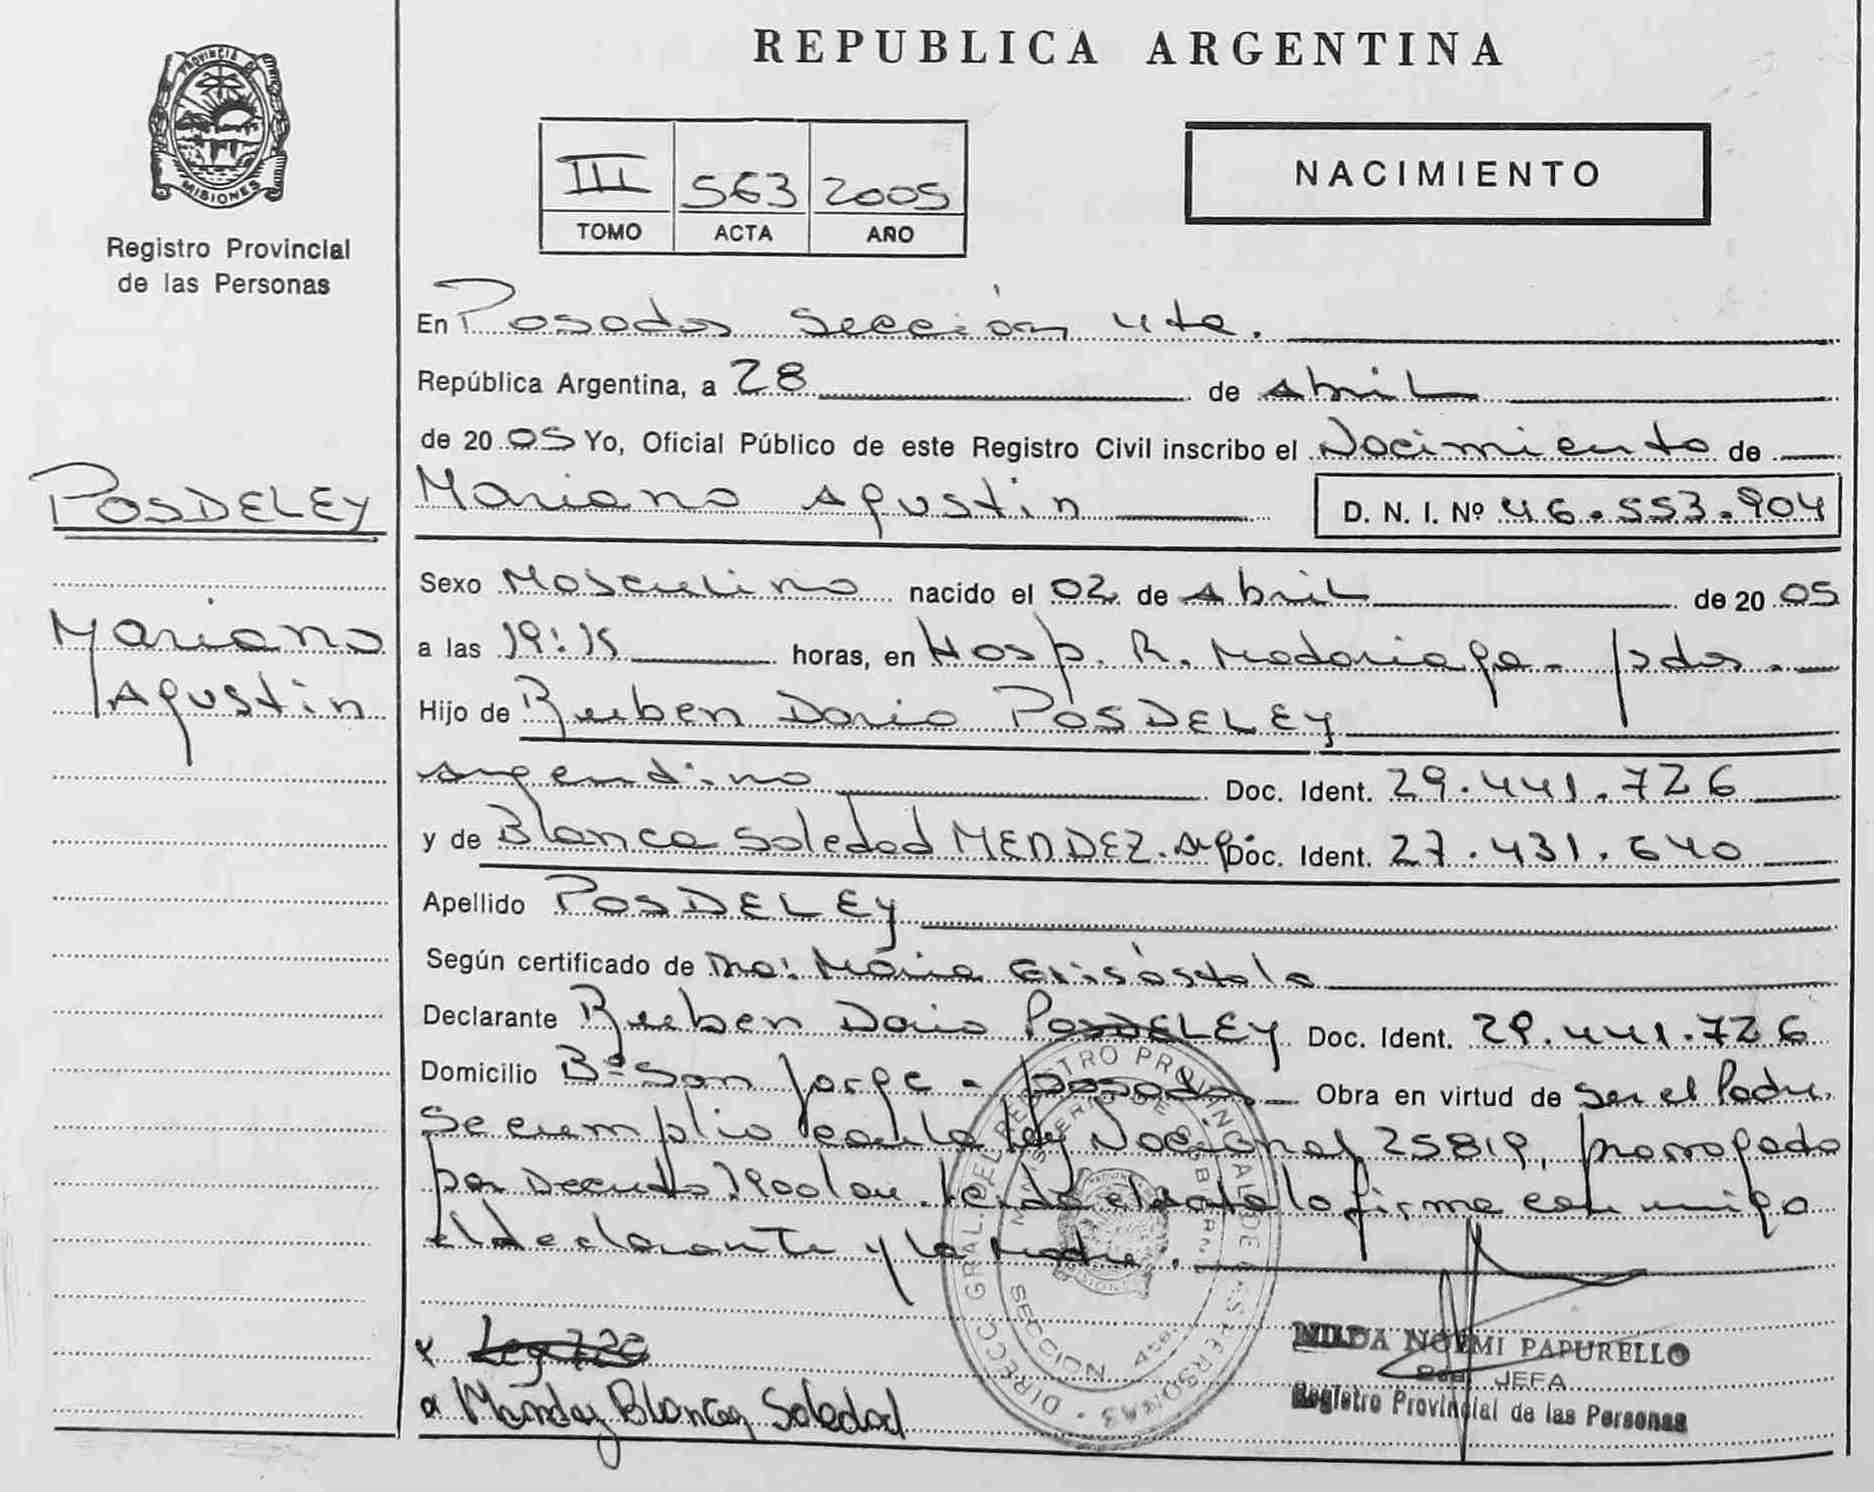 REPUBLICA ARGENTINA
PROVINCIA DE
MISIONES
Registro Provincial
de las Personas
III 563 2005
TOMO ACTA AÑO
NACIMIENTO
En Posadas Sección 4ta.
República Argentina, a 28 de Abril
de 2005 Yo, Oficial Público de este Registro Civil inscribo el Nacimiento de
Mariano Agustin D. N. I. Nº 46.553.904
POSDELEY
Mariano
Agustin
Sexo Masculino nacido el 02 de Abril de 2005
a las 19:15 horas, en Hosp. R. Madariaga - Pdas.
Hijo de Ruben Dario POSDELEY
argentino Doc. Ident. 29.441.726
y de Blanca Soledad MENDEZ. arg. Doc. Ident. 27.431.640
Apellido POSDELEY
Según certificado de Maria
Declarante Ruben Dario POSDELEY Doc. Ident. 29.441.726
Domicilio Bº San Jorge - posadas. Obra en virtud de ser el Padre.
Se cumplio con la ley Nacional 25819, prorrogado
por Decreto leida el acta lo firma con migo
el declarante y la madre.
Mendez Blanca Soledad
DIRECC. GRAL. DEL REGISTRO PROVINCIAL DE LAS PERSONAS
MINISTERIO DE GOBIERNO
SECCION 4ta.
NILDA NOEMI PAPURELLO
JEFA
Registro Provincial de las Personas